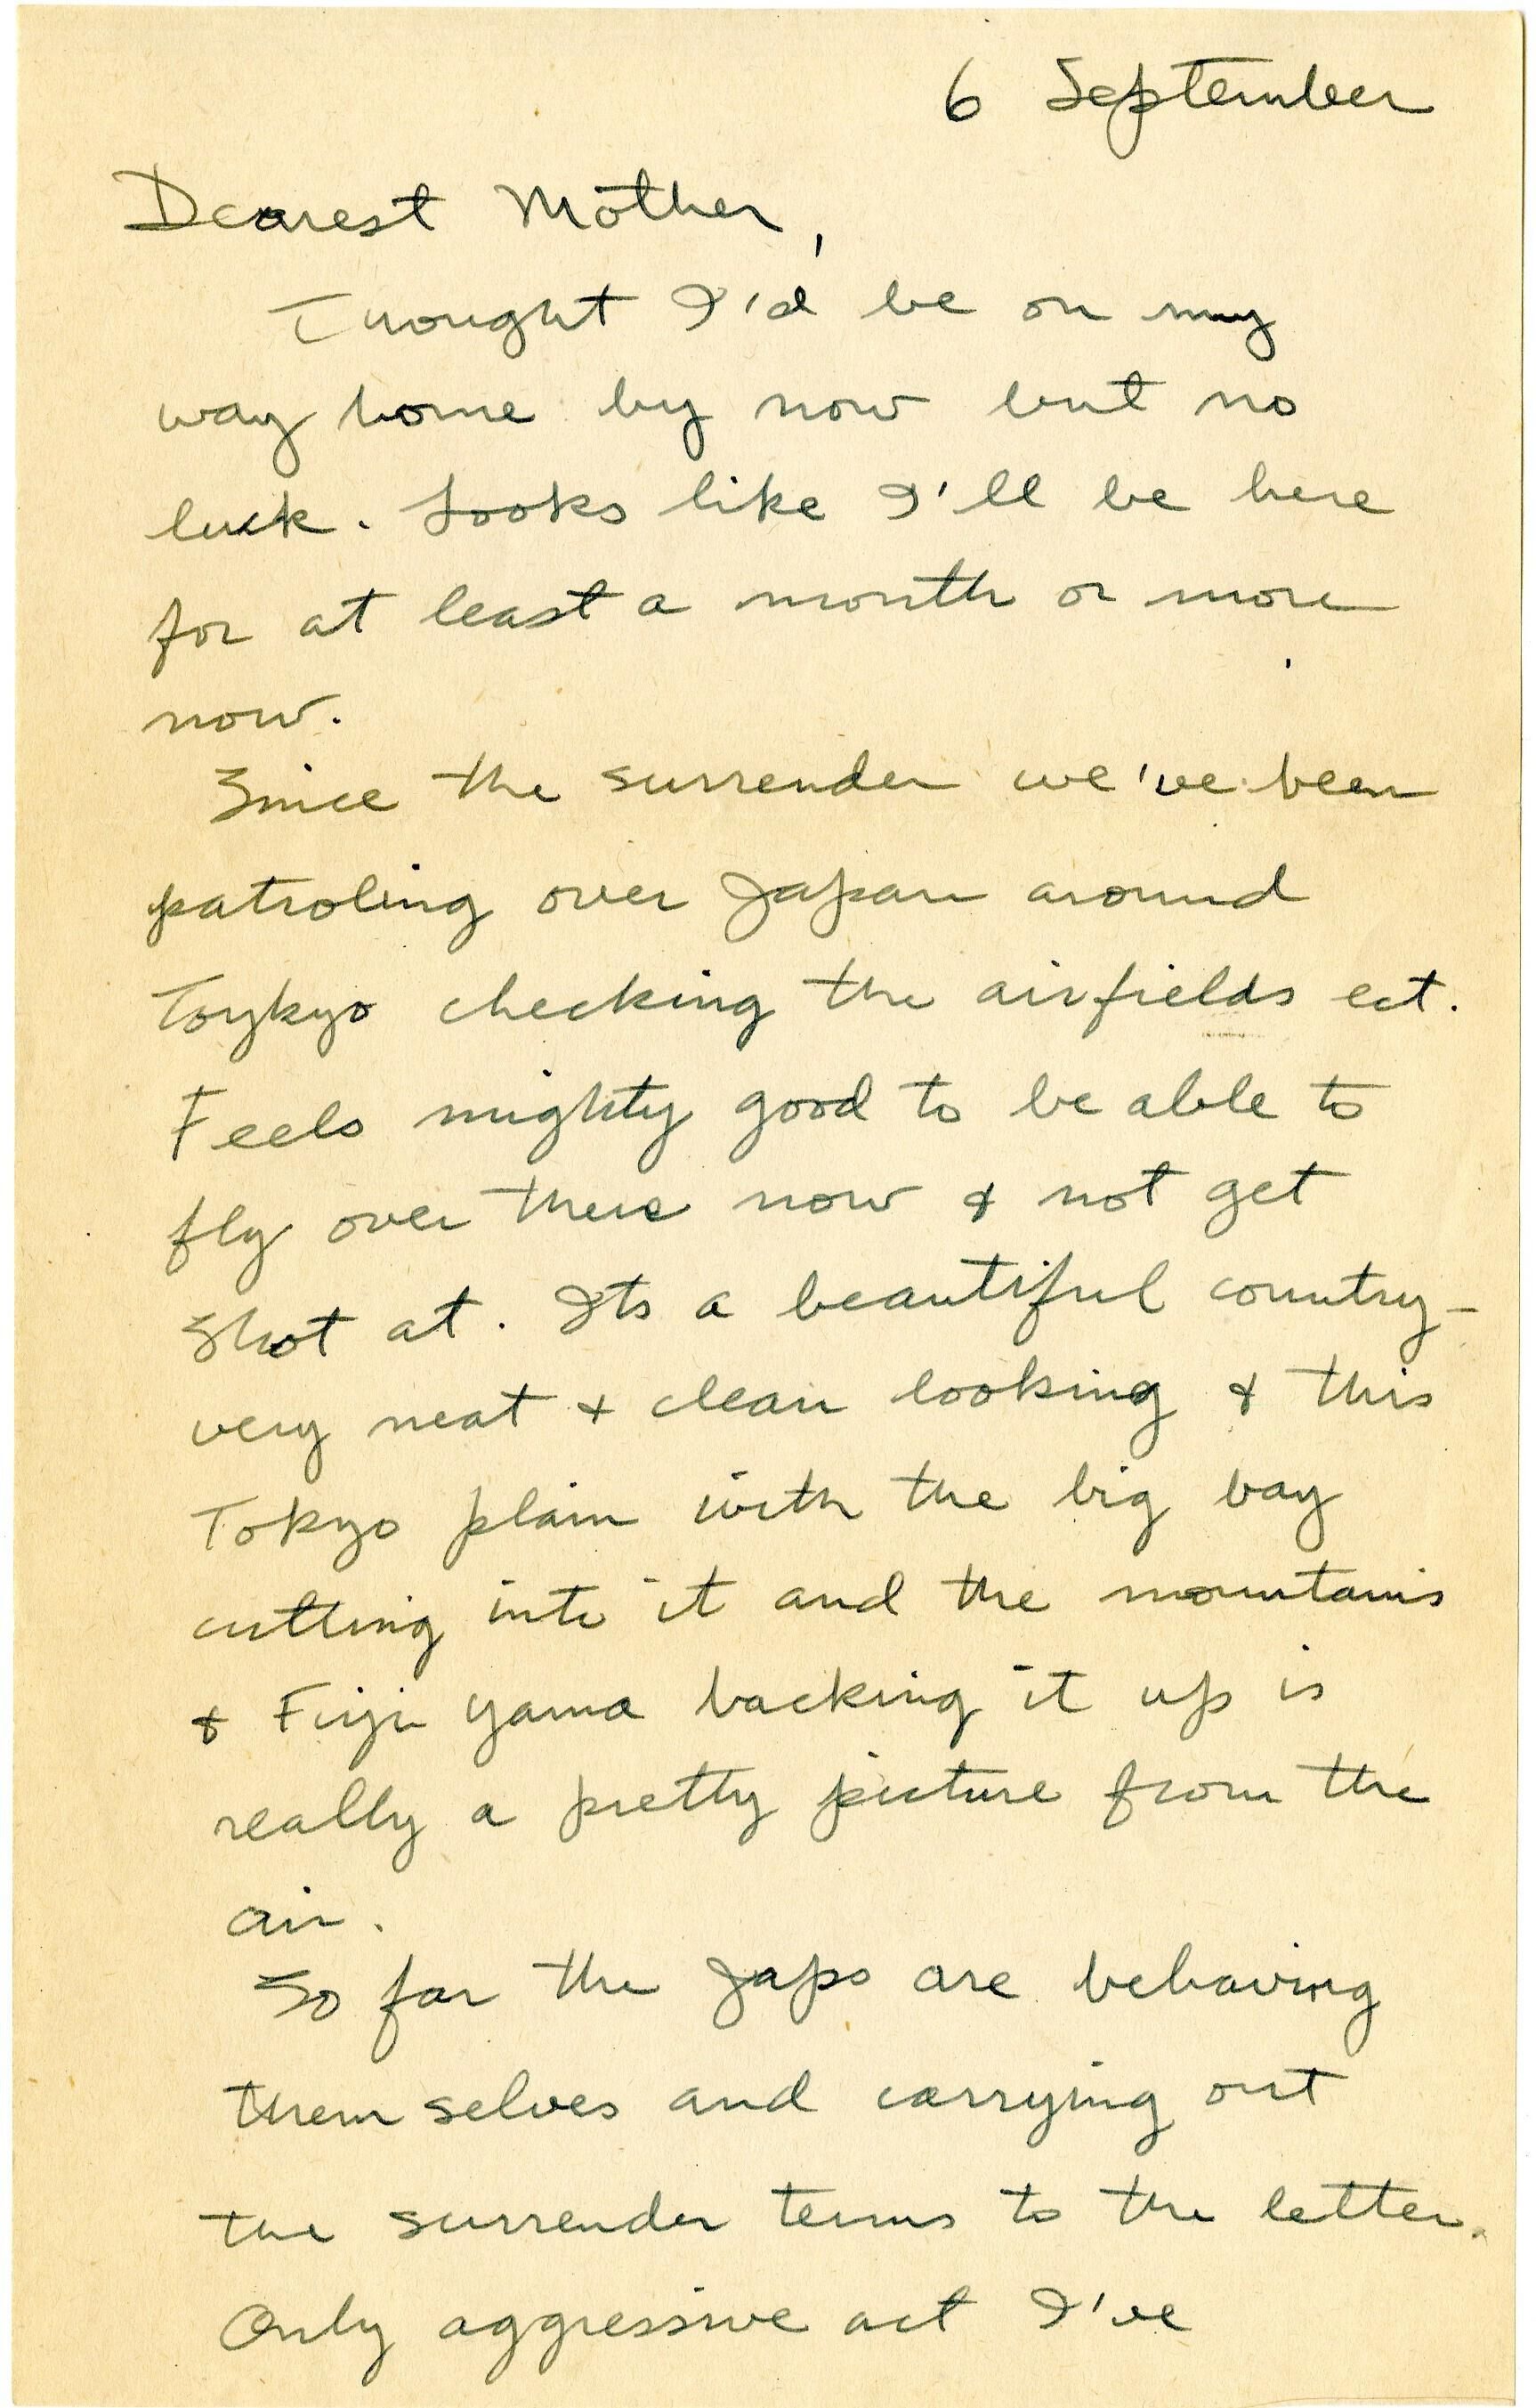 6 September
Dearest Mother,
Thought I'd be on my
way home by now but no
luck. Looks like I'll be here
for at least a month or more
now.
Since the surrender we've been
patroling over Japan around
Toykyo checking the airfields ect.
Feels mighty good to be able to
fly over there now & not get
shot at. Its a beautiful country -
very neat & clean looking & this
Tokyo plain with the big bay
cutting into it and the mountains
& Fuji yama backing it up is
really a pretty picture from the
air.
So far the Japs are behaving
them selves and carrying out
the surrender terms to the letter.
Only aggressive act I've